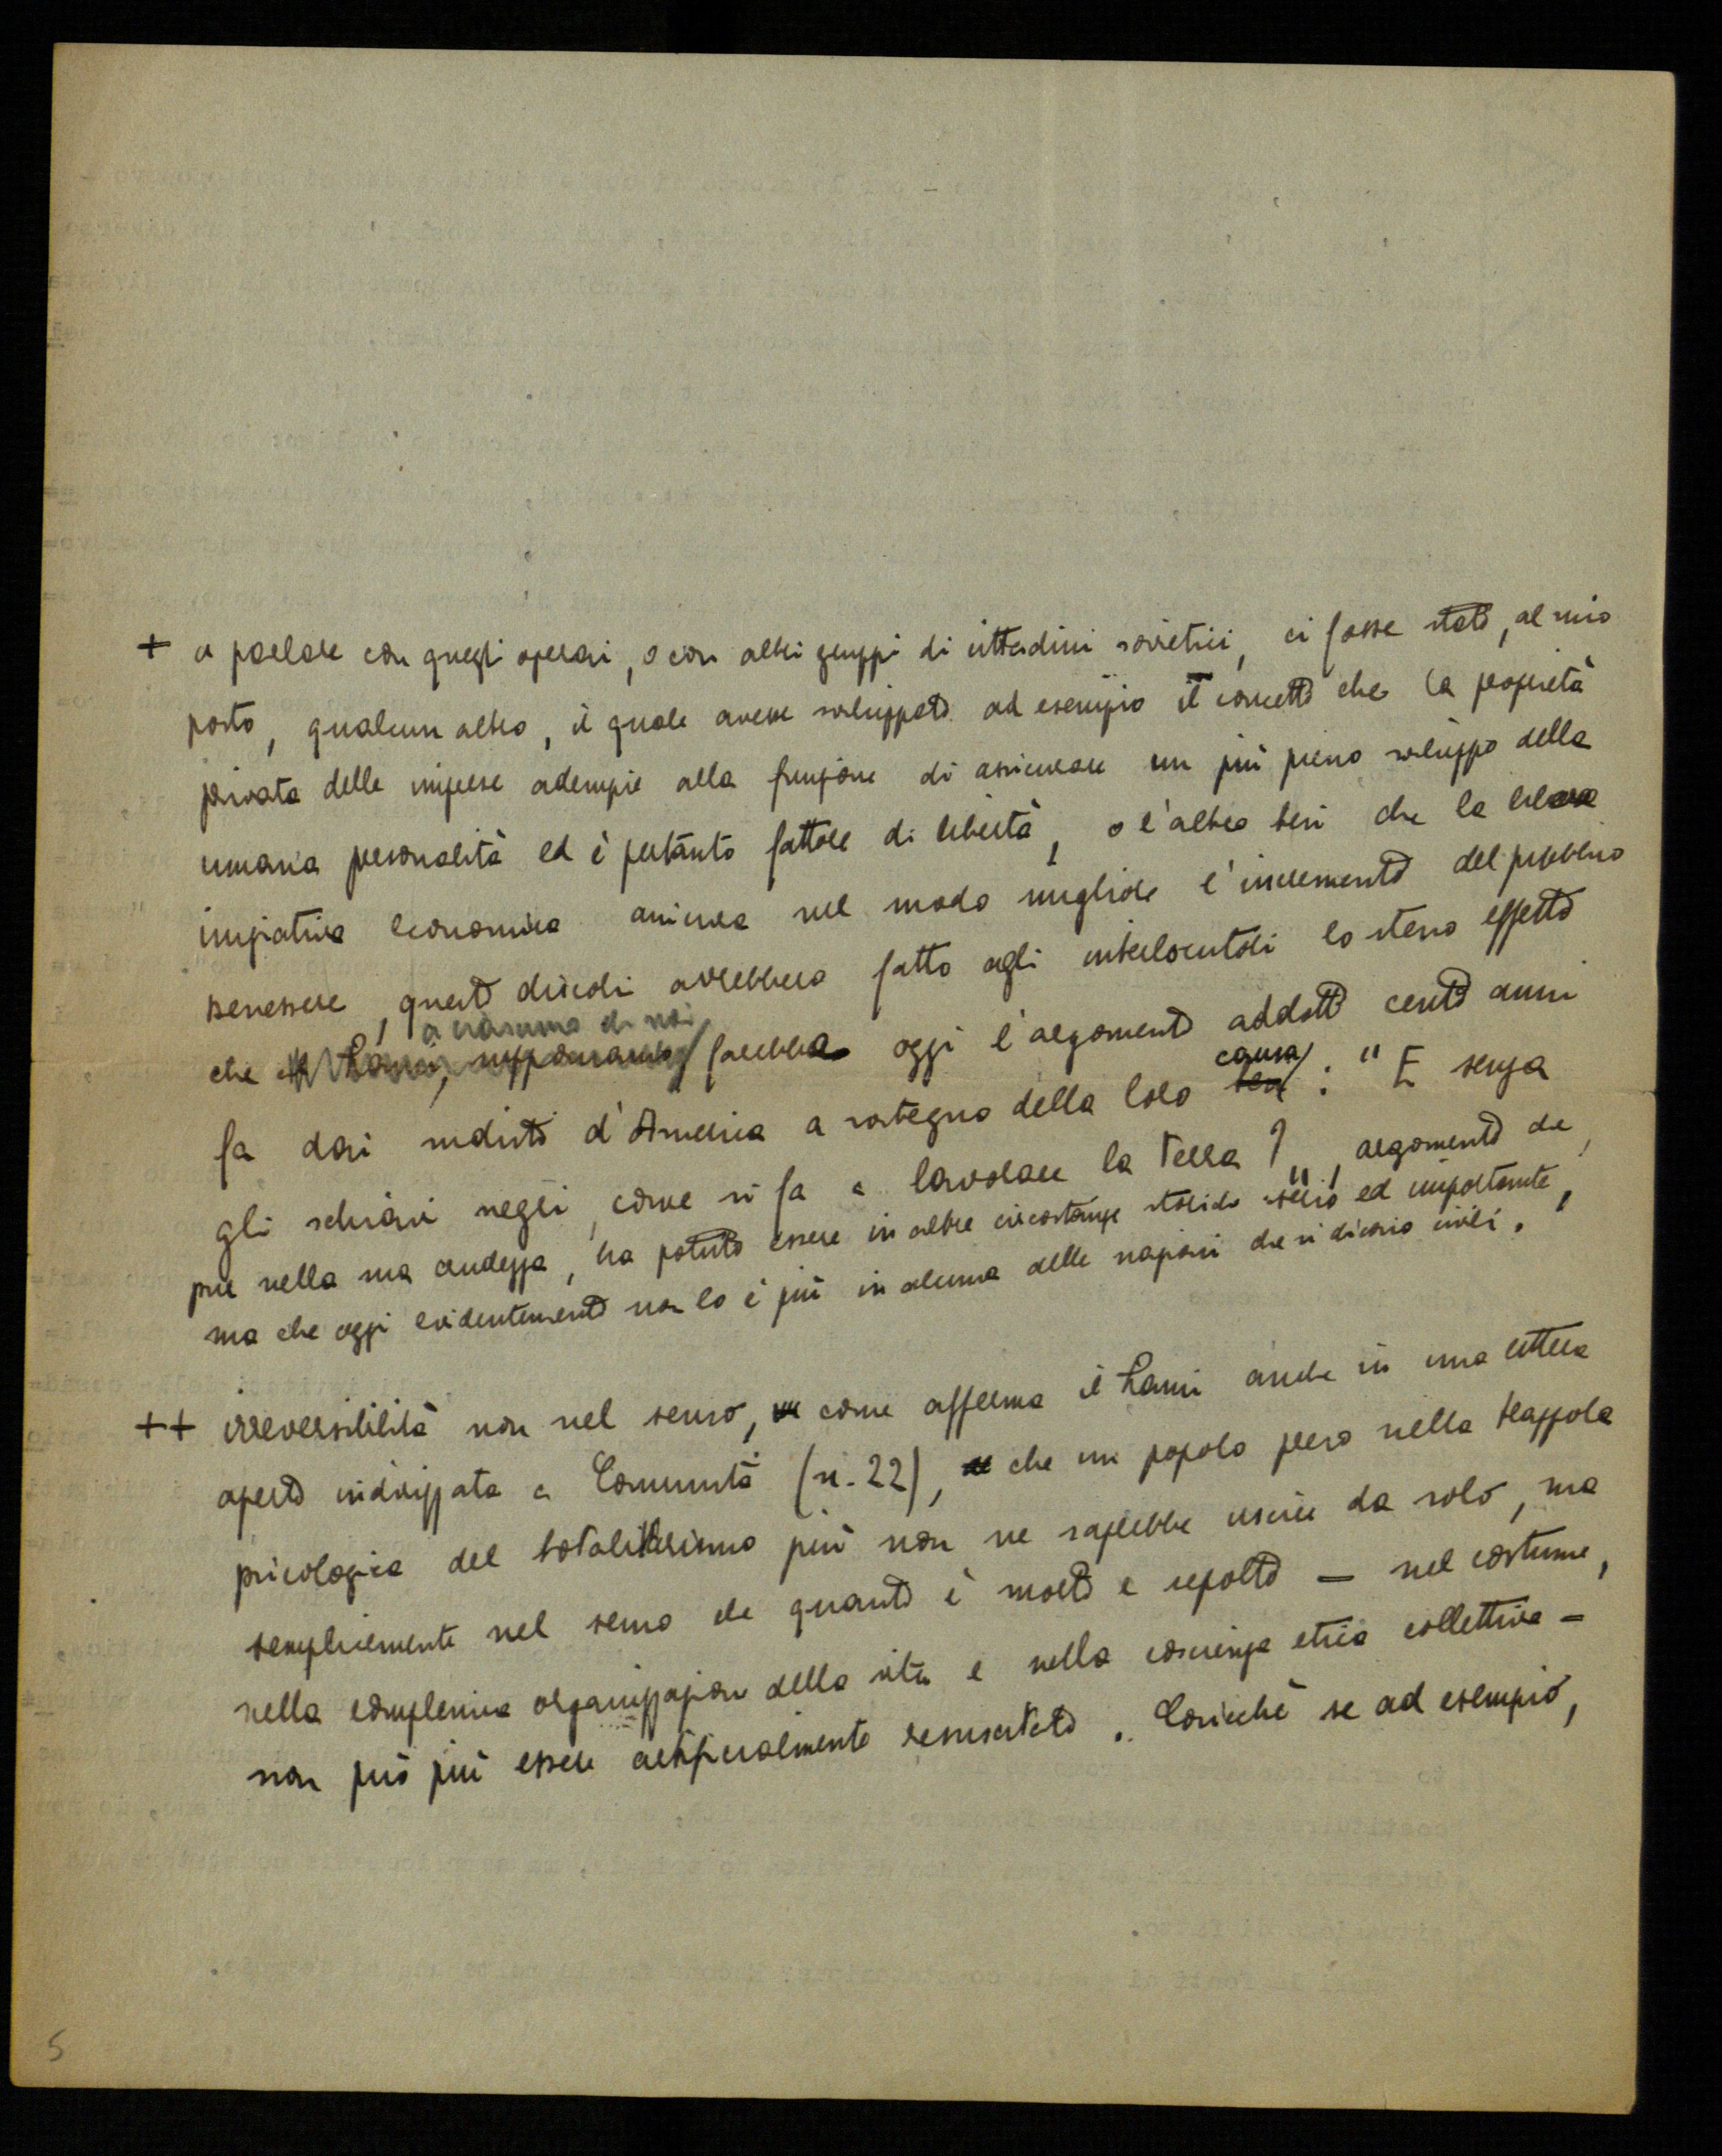 + a parlare con quegli operai, o con altri gruppi di cittadini sovietici, ci fosse stato, al mio
posto, qualcun altro, il quale avesse sviluppato ad esempio il concetto che la proprietà
privata delle imprese adempie alla funzione di assicurare un più pieno sviluppo della
umana personalità ed è pertanto fattore di libertà, o l'altra tesi che la libera
iniziativa economica assicura nel modo migliore l'incremento del pubblico
benessere, questi discorsi avrebbero fatto agli interlocutori lo stesso effetto
a ciascuno di noi
che farebbe oggi l'argomento addotto cento anni
causa
fa dai sudisti d'America a sostegno della loro : "E senza
gli schiavi negri, come si fa a lavorare la terra?", argomento che,
pur nella sua crudezza, ha potuto essere in altre circostanze storiche serio ed importante,
ma che oggi evidentemente non lo è più in alcuna delle nazioni che si dicono civili.
++ irreversibilità non nel senso, come afferma il Lami anche in una lettera
aperta indirizzata a Comunità (n. 22), che un popolo preso nella trappola
psicologica del totalitarismo più non ne saprebbe uscire da solo, ma
semplicemente nel senso che quanto è morto e sepolto — nel costume,
nella complessiva organizzazione della vita e nella coscienza etica collettiva —
non può più essere artificialmente resuscitato. Cosicché se ad esempio,
5